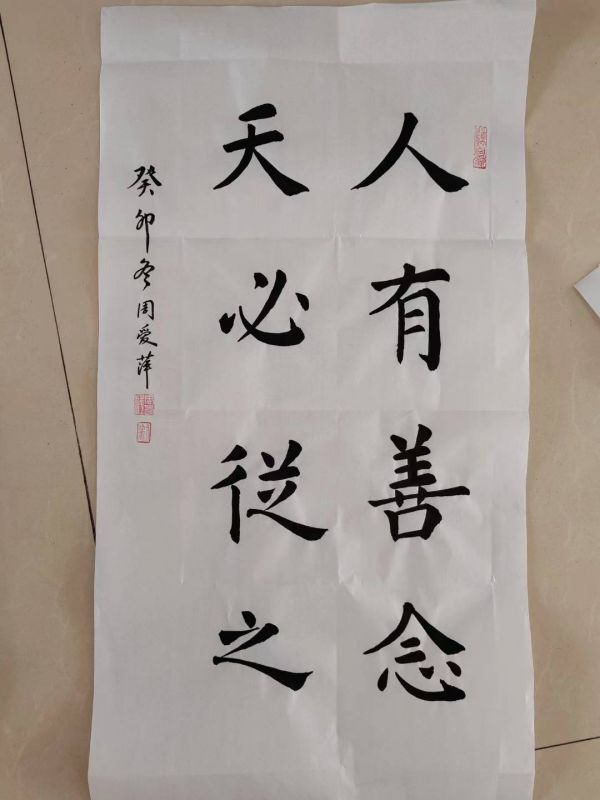 人有善念
天必從之
癸卯冬周爱萍